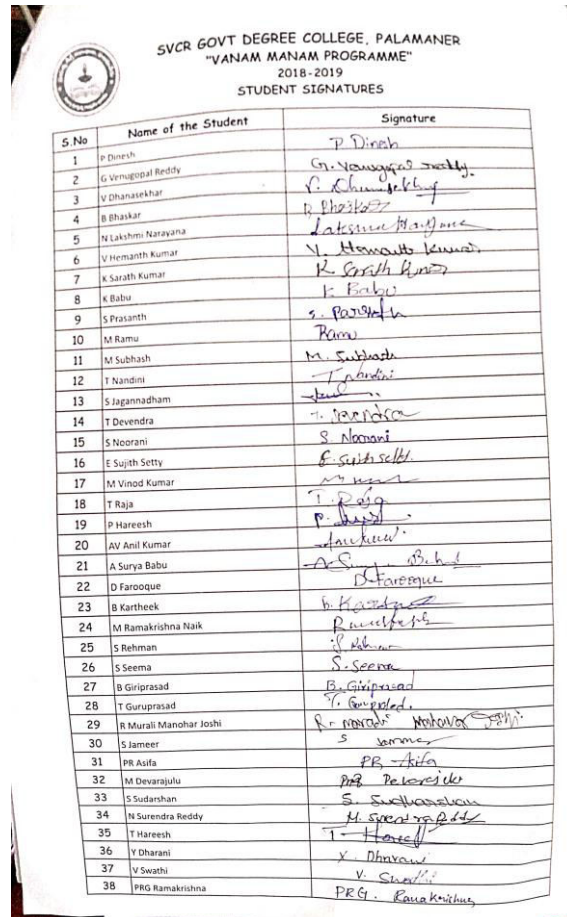 SVCR GOVT DEGREE COLLEGE, PALAMANER
"VANAM MANAM PROGRAMME"
2018-2019
STUDENT SIGNATURES
S.No Name of the Student Signature
1 P Dinesh P Dinesh
2 G Venugopal Reddy G. Venugopal reddy.
3 V Dhanasekhar V.
4 B Bhaskar B Bhaskar
5 N Lakshmi Narayana Lakshmi
6 V Hemanth Kumar V. Hemanth Kumar
7 K Sarath Kumar K Sarath Kumar
8 K Babu K Babu
9 S Prasanth S.
10 M Ramu Ramu
11 M Subhash M. Subhash
12 T Nandini T Nandini
13 S Jagannadham
14 T Devendra T. Devendra
15 S Noorani S Noorani
16 E Sujith Setty E. Sujith setty.
17 M Vinod Kumar
18 T Raja T. Raja
19 P Hareesh P.
20 AV Anil Kumar
21 A Surya Babu A
22 D Farooque D Farooque
23 B Kartheek B.
24 M Ramakrishna Naik
25 S Rehman S
26 S Seema S. Seema
27 B Giriprasad B. Giriprasad
28 T Guruprasad T.
29 R Murali Manohar Joshi R. Manohar Joshi
30 S Jameer S
31 PR Asifa PR Asifa
32 M Devarajulu
33 S Sudarshan S. Sudharshan
34 N Surendra Reddy N. Surendra Reddy
35 T Hareesh T
36 Y Dharani Y. Dharani
37 V Swathi V. Swathi
38 PRG Ramakrishna PRG. Ramakrishna